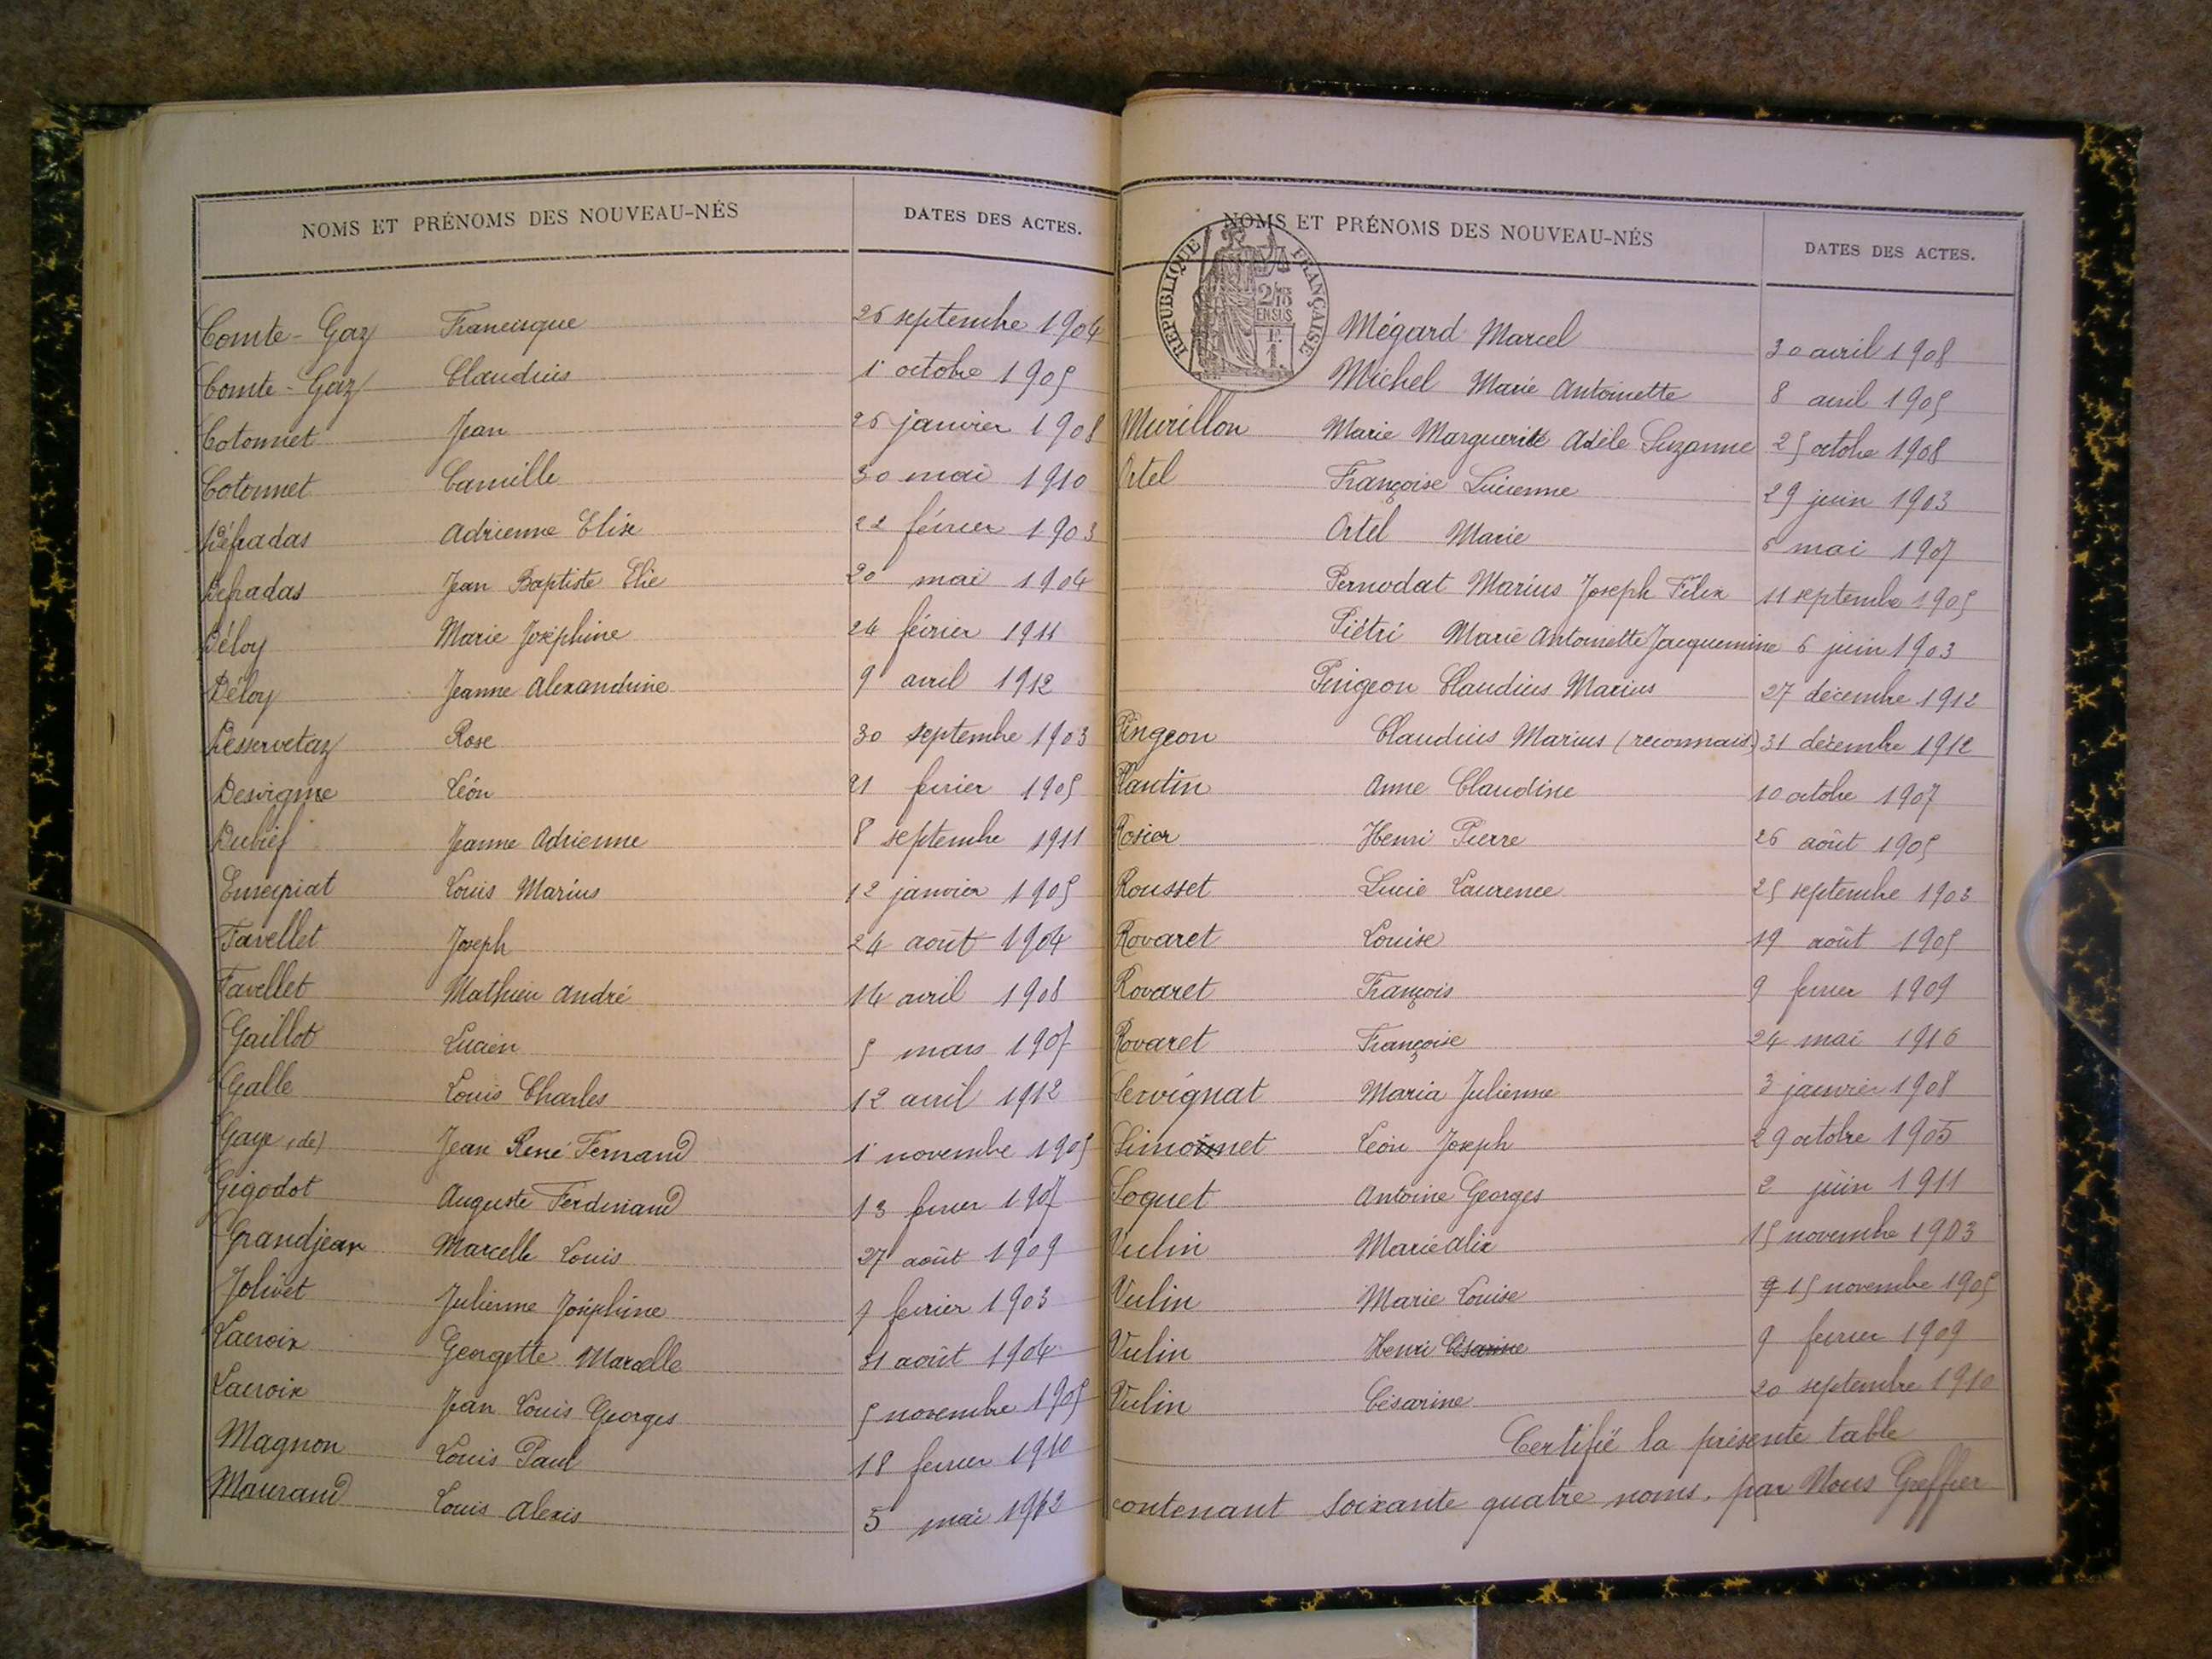 NOMS ET PRÉNOMS DES NOUVEAU-NÉS DATES DES ACTES.
Comte-Gaz Francisque 26 septembre 1904
Comte-Gaz Claudius 1er octobre 1905
Cotonnet Jean 26 janvier 1908
Cotonnet Camille 30 mai 1910
Défradas Adrienne Elise 22 février 1903
Défradas Jean Baptiste Elie 20 mai 1904
Déloy Marie Joséphine 24 février 1911
Déloy Jeanne Alexandrine 9 avril 1912
Desservetaz Rose 30 septembre 1903
Desvigne Léon 21 février 1905
Dubief Jeanne Adrienne 8 septembre 1911
Emeyriat Louis Marius 12 janvier 1905
Favellet Joseph 24 août 1904
Favellet Mathieu André 14 avril 1908
Gaillot Lucien 5 mars 1907
Galle Louis Charles 12 avril 1912
Gaye (de) Jean René Fernand 1er novembre 1905
Gigodot Auguste Ferdinand 13 février 1907
Grandjean Marcelle Louis 27 août 1909
Jolivet Julienne Joséphine 9 février 1903
Lacroix Georgette Marcelle 31 août 1904
Lacroix Jean Louis Georges 5 novembre 1905
Magnon Louis Paul 18 février 1910
Maurand Louis Alexis 5 mai 1912
NOMS ET PRÉNOMS DES NOUVEAU-NÉS DATES DES ACTES.
RÉPUBLIQUE FRANÇAISE
2/10 EN SUS
F. 1.
Mégard Marcel 30 avril 1908
Michel Marie Antoinette 8 avril 1905
Murillon Marie Marguerite Adèle Suzanne 25 octobre 1908
Ortel Françoise Lucienne 29 juin 1903
Ortel Marie 6 mai 1907
Pernodat Marius Joseph Félix 11 septembre 1905
Piétri Marie Antoinette Jacquemine 6 juin 1903
Pingeon Claudius Marius 27 décembre 1912
Pingeon Claudius Marius (reconnais.) 31 décembre 1912
Plantin Anne Claudine 10 octobre 1907
Rosier Henri Pierre 26 août 1905
Rousset Lucie Laurence 25 septembre 1903
Rovaret Louise 19 août 1905
Rovaret François 9 février 1909
Rovaret Françoise 24 mai 1910
Servignat Maria Julienne 3 janvier 1908
Simonnet Léon Joseph 29 octobre 1905
Soquet Antoine Georges 2 juin 1911
Vulin Marie Alix 15 novembre 1903
Vulin Marie Louise 9 15 novembre 1905
Vulin Henri Césarine 9 février 1909
Vulin Césarine 20 septembre 1910
Certifié la présente table
contenant soixante quatre noms, par Nous Greffier